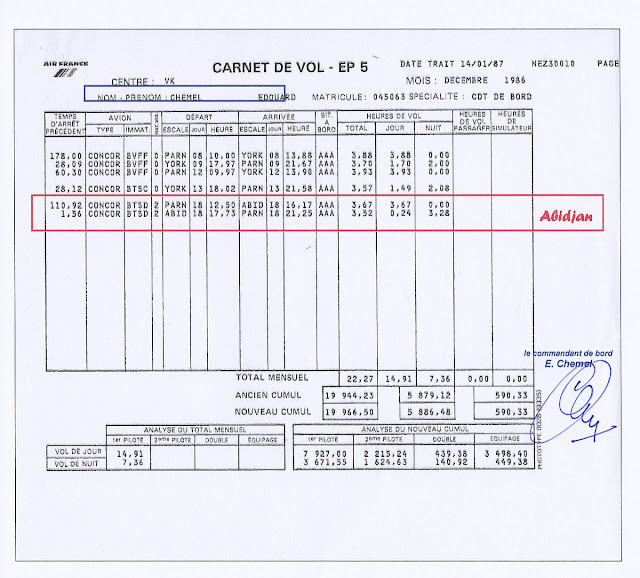 AIR FRANCE
CARNET DE VOL - EP 5
DATE TRAIT 14/01/87 NEZ30010 PAGE
CENTRE : VK MOIS : DECEMBRE 1986
NOM - PRENOM : CHEMEL EDOUARD MATRICULE: 045063 SPECIALITE : CDT DE BORD
TEMPS D'ARRÊT PRÉCÉDENT AVION DÉPART ARRIVÉE SIT. A BORD HEURES DE VOL HEURES DE VOL PASSAGER HEURES DE SIMULATEUR
TYPE IMMAT. ESCALE JOUR HEURE ESCALE JOUR HEURE TOTAL JOUR NUIT
178,00 CONCOR BVFF 0 PARN 08 10,00 YORK 08 13,88 AAA 3,88 3,88 0,00
28,09 CONCOR BVFF 0 YORK 09 17,97 PARN 09 21,67 AAA 3,70 1,70 2,00
60,30 CONCOR BVFF 0 PARN 12 09,97 YORK 12 13,90 AAA 3,93 3,93 0,00
28,12 CONCOR BTSC 0 YORK 13 18,02 PARN 13 21,58 AAA 3,57 1,49 2,08
110,92 CONCOR BTSD 2 PARN 18 12,50 ABID 18 16,17 AAA 3,67 3,67 0,00
1,56 CONCOR BTSD 2 ABID 18 17,73 PARN 18 21,25 AAA 3,52 0,24 3,28
Abidjan
le commandant de bord
E. Chemel
TOTAL MENSUEL 22,27 14,91 7,36 0,00 0,00
ANCIEN CUMUL 19 944,23 5 879,12 590,33
NOUVEAU CUMUL 19 966,50 5 886,48 590,33
ANALYSE DU TOTAL MENSUEL ANALYSE DU NOUVEAU CUMUL
1er PILOTE 2ème PILOTE DOUBLE ÉQUIPAGE 1er PILOTE 2ème PILOTE DOUBLE EQUIPAGE
VOL DE JOUR 14,91 7 927,00 2 215,24 439,38 3 498,40
VOL DE NUIT 7,36 3 671,55 1 624,63 140,92 449,38